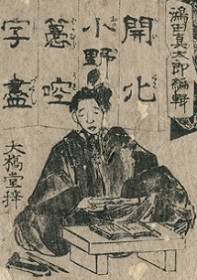 鴻田真太郎編輯
開化
小野
篁啌
字盡
大橋堂梓